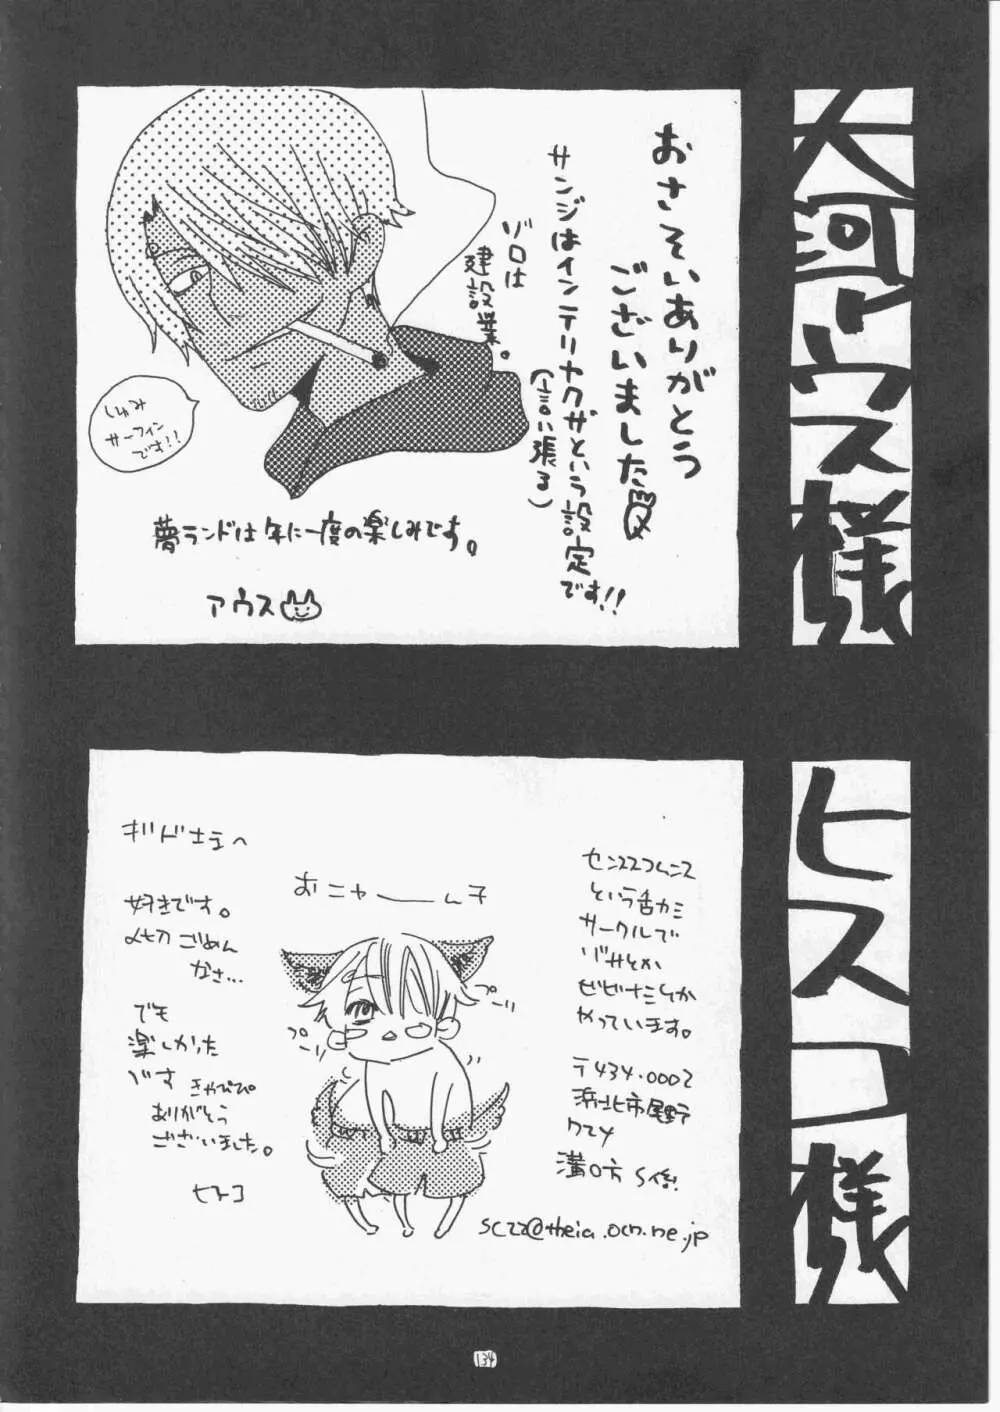 大河アウス様
おさそいありがとう
ございました
サンジはインテリヤクザという設定です!!
(言い張る)
ゾロは
建設業。
しじみ
サーフィン
です!!
夢ランドは年に一度の楽しみです。
アウス
ヒスコ様
という
サークルで
やっています。
〒434.0002
浜北市尾野
溝口方 S係!
sc22@theia.ocn.ne.jp
おニャーん子
プーリ
プーリ
好きです。
〆切ごめん
なさ…
でも
楽しかった
です
きゃぴぴ
ありがとう
ございました。
ヒスコ
134